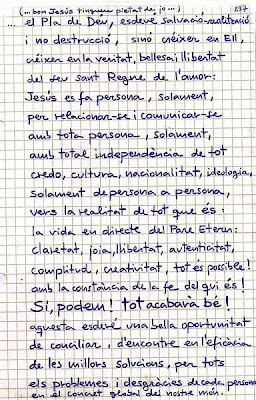 (... bon Jesús tingueu pietat de jo ...) 837
el Pla de Deu, esdevé salvació-realització
i no destrucció, sinó créixer en Ell,
créixer en la veritat, bellesa i llibertat
del seu sant Regne de l'amor:
Jesús es fa persona, solament,
per relacionar-se i comunicar-se
amb tota persona, solament,
amb total independència de tot
credo, cultura, nacionalitat, ideologia,
solament de persona a persona,
vers la realitat de tot que és:
la vida en directe del Pare Etern:
claretat, joia, llibertat, autenticitat,
complitud, creativitat, tot és possible!
amb la constància de la fe del qui és!
Sí, podem! tot acabarà bé!
aquesta esdevé una bella oportunitat
de conciliar, d'encontre en l'eficàcia
de les millors solucions, per tots
els problemes i desgràcies de cada persona
en el concret global del nostre món.